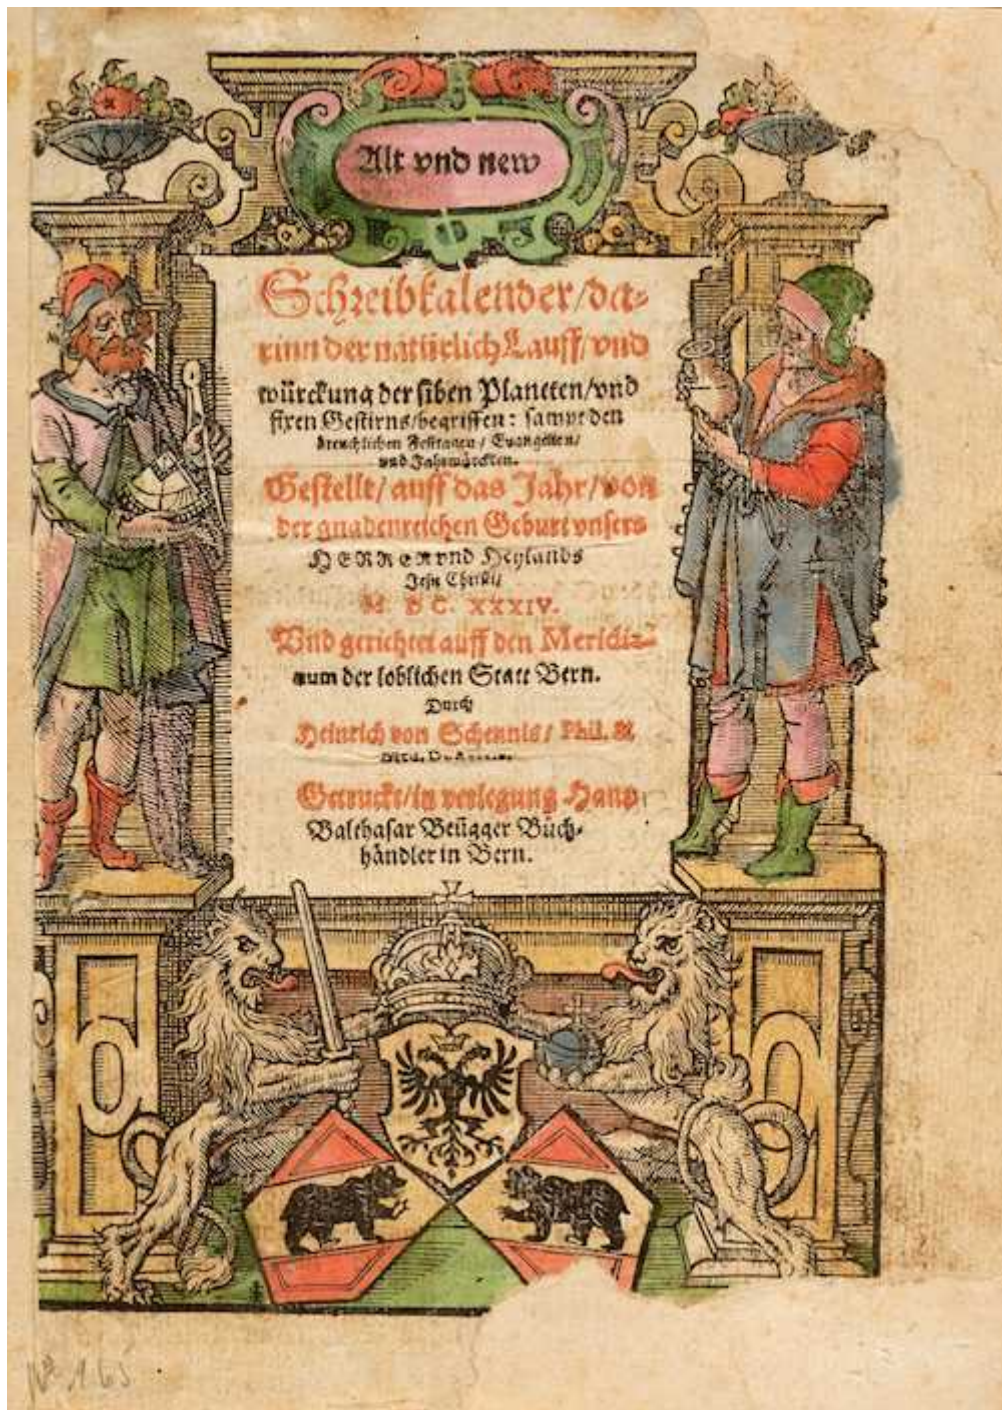 Alt vnd new
Schreibkalender/da-
rinn der natürlich Lauff/vnd
würckung der siben Planeten/vnd
fixen Gestirns/begriffen: sampt den
breuchlichen Festtagen/Evangelien/
vnd Jahrmärckten.
Gestellt/auff das Jahr/von
der gnadenreichen Geburt vnsers
HERREN vnd Heylands
Jesu Christi/
M. DC. XXXIV.
Vnd gerichtet auff den Meridia-
num der loblichen Statt Bern.
Durch
Heinrich von Schennis/Phil. &
Getruckt/in verlegung Hans
Balthasar Beügger Büch-
händler in Bern.